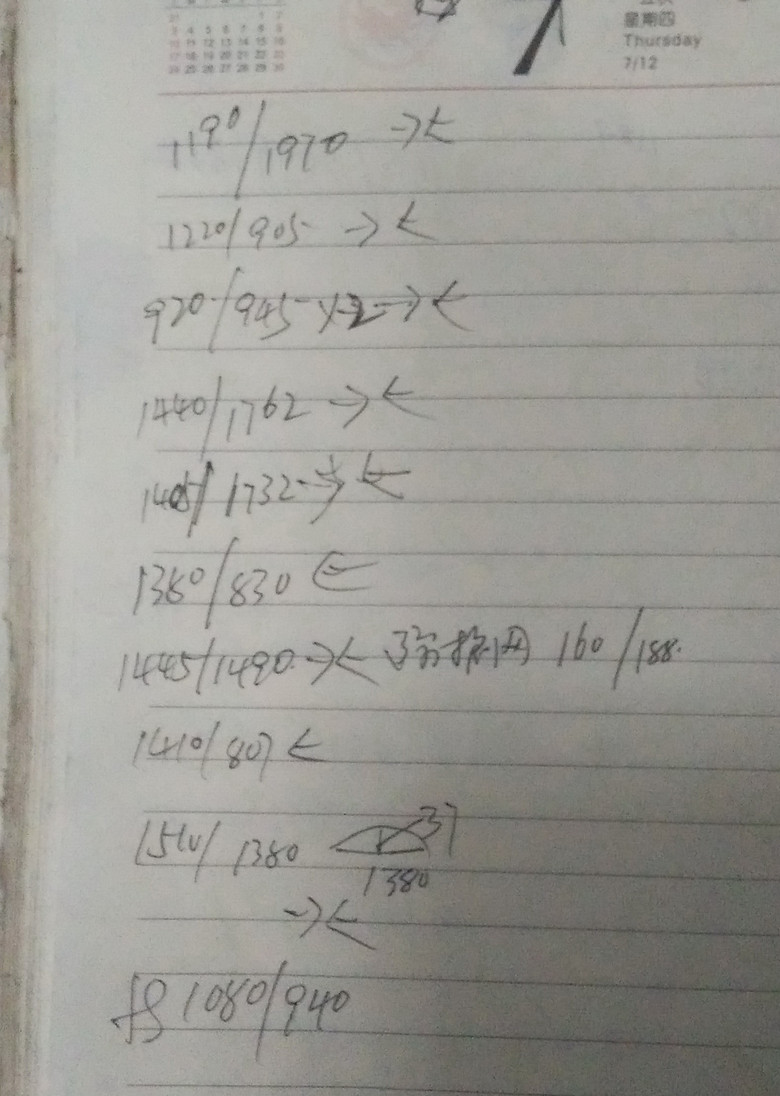 星期四
Thursday
7/12
1190/1970 →←
1220/905 →←
920/945×2→←
1440/1762 →←
1405/1732→←
1380/830 ←
1445/1490→← 160/188
1410/807←
1510/1380 37
1380
→←
1080/940